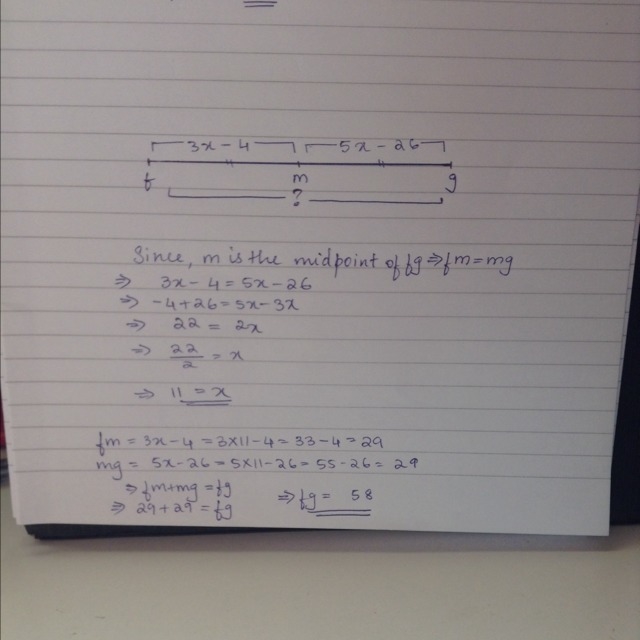 3x - 4 5x - 26
f m g
?
Since, m is the midpoint of fg ⇒ fm = mg
⇒ 3x - 4 = 5x - 26
⇒ -4 + 26 = 5x - 3x
⇒ 22 = 2x
⇒ 22/2 = x
⇒ 11 = x
fm = 3x - 4 = 3x11 - 4 = 33 - 4 = 29
mg = 5x - 26 = 5x11 - 26 = 55 - 26 = 29
⇒ fm + mg = fg ⇒ fg = 58
⇒ 29 + 29 = fg